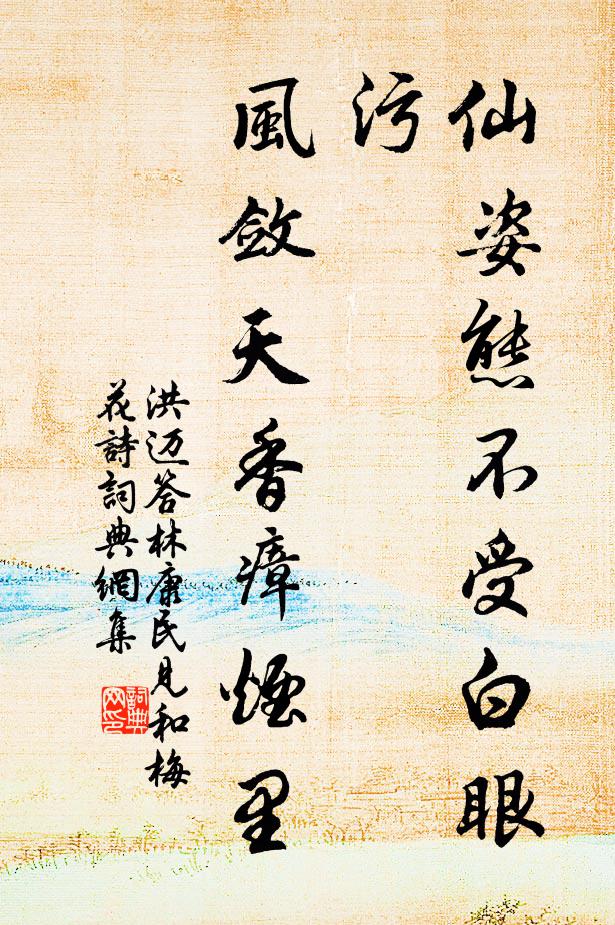 仙姿態不受白眼
污
風斂天香瘴煙里
洪迈答林康民見和梅
花詩詞典網集
詞典
网印